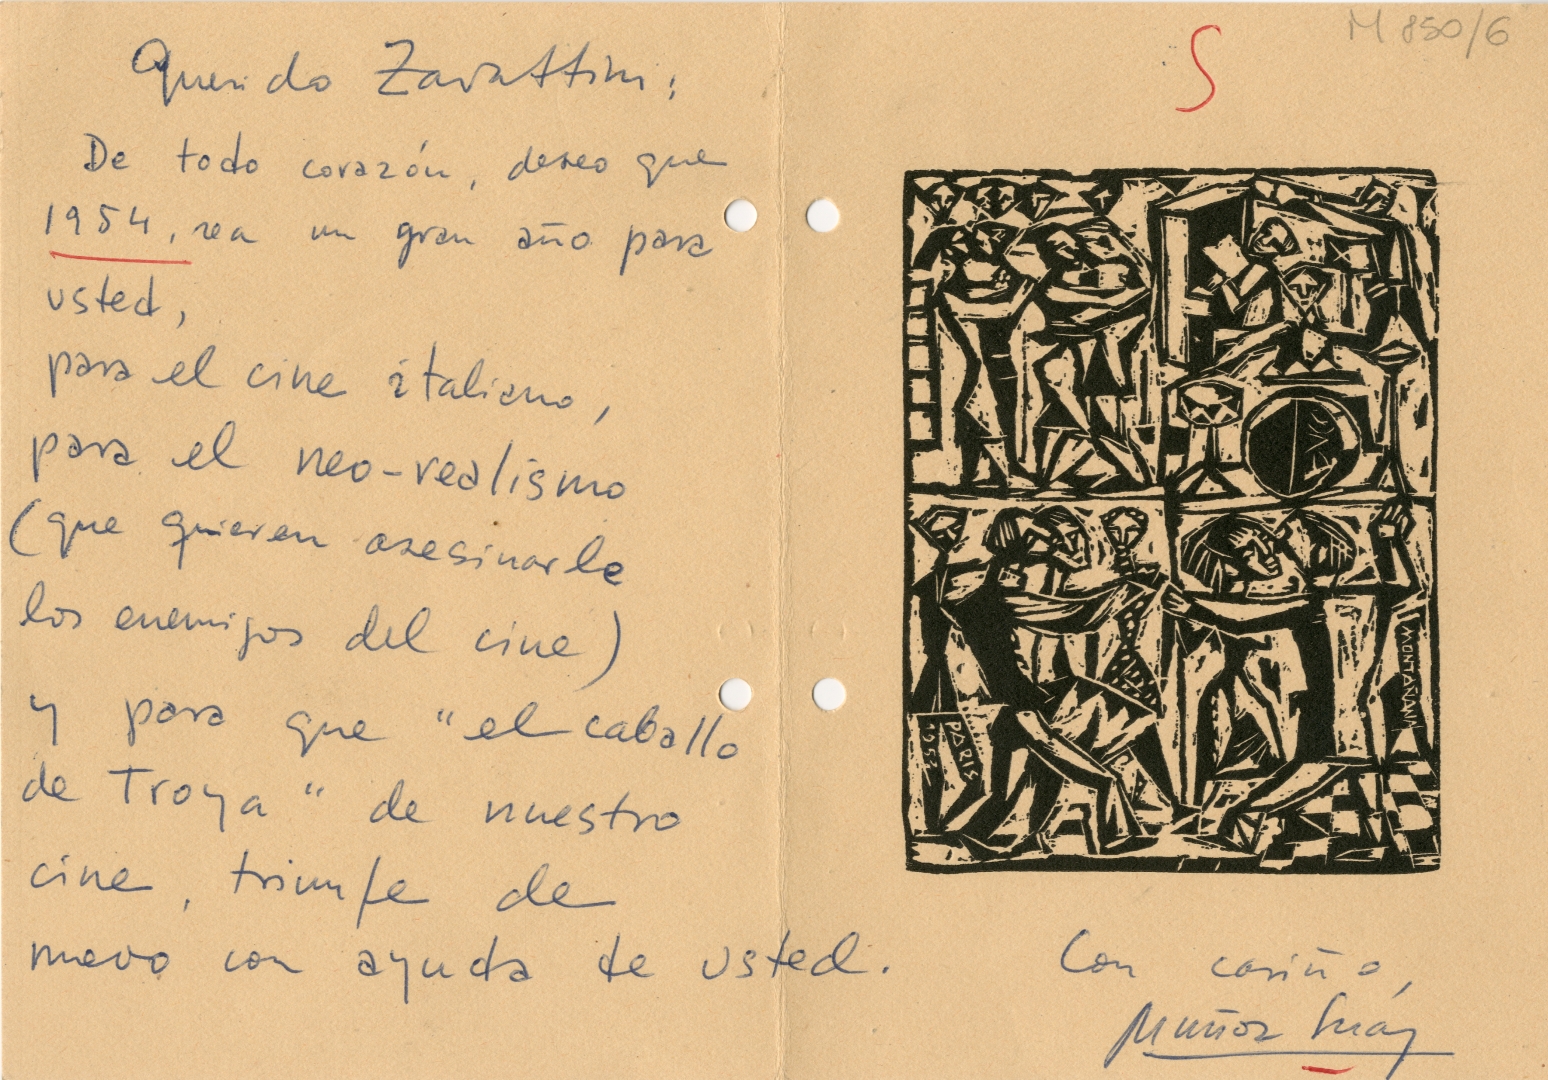 Querido Zavattini:
De todo corazón, deseo que
1954, sea un gran año para
usted,
para el cine italiano,
para el neo-realismo
(que quieren asesinarle
los enemigos del cine)
y para que "el caballo
de Troya" de nuestro
cine, triunfe de
nuevo con ayuda de usted.
S
M 850/6
MONTAÑANA
PARIS
1952
Con cariño,
Muñoz Suay